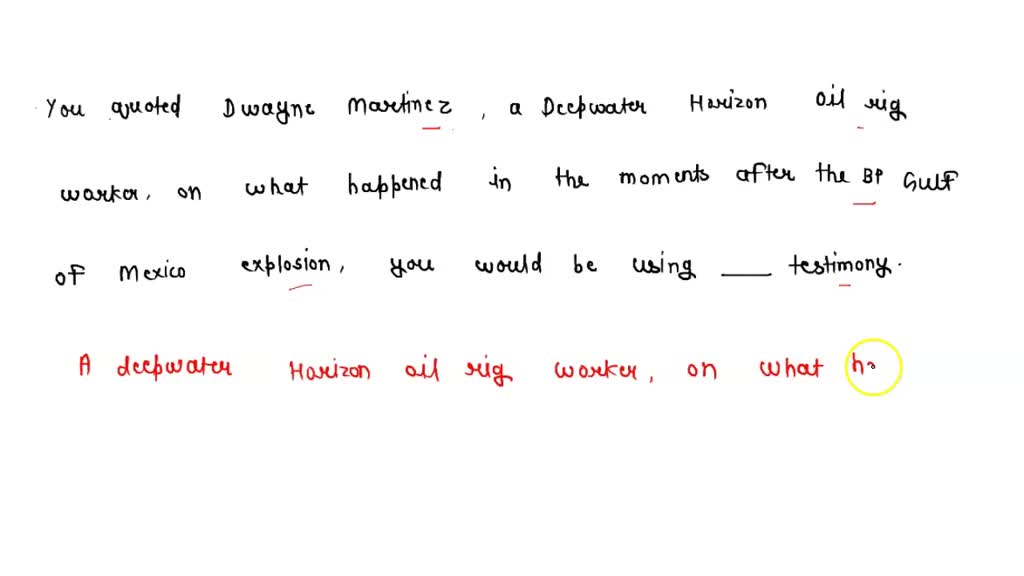 You quoted Dwayne Martinez, a Deepwater Horizon oil rig
worker, on what happened in the moments after the BP Gulf
of Mexico explosion, you would be using ___ testimony.
A deepwater Horizon oil rig worker, on what ha